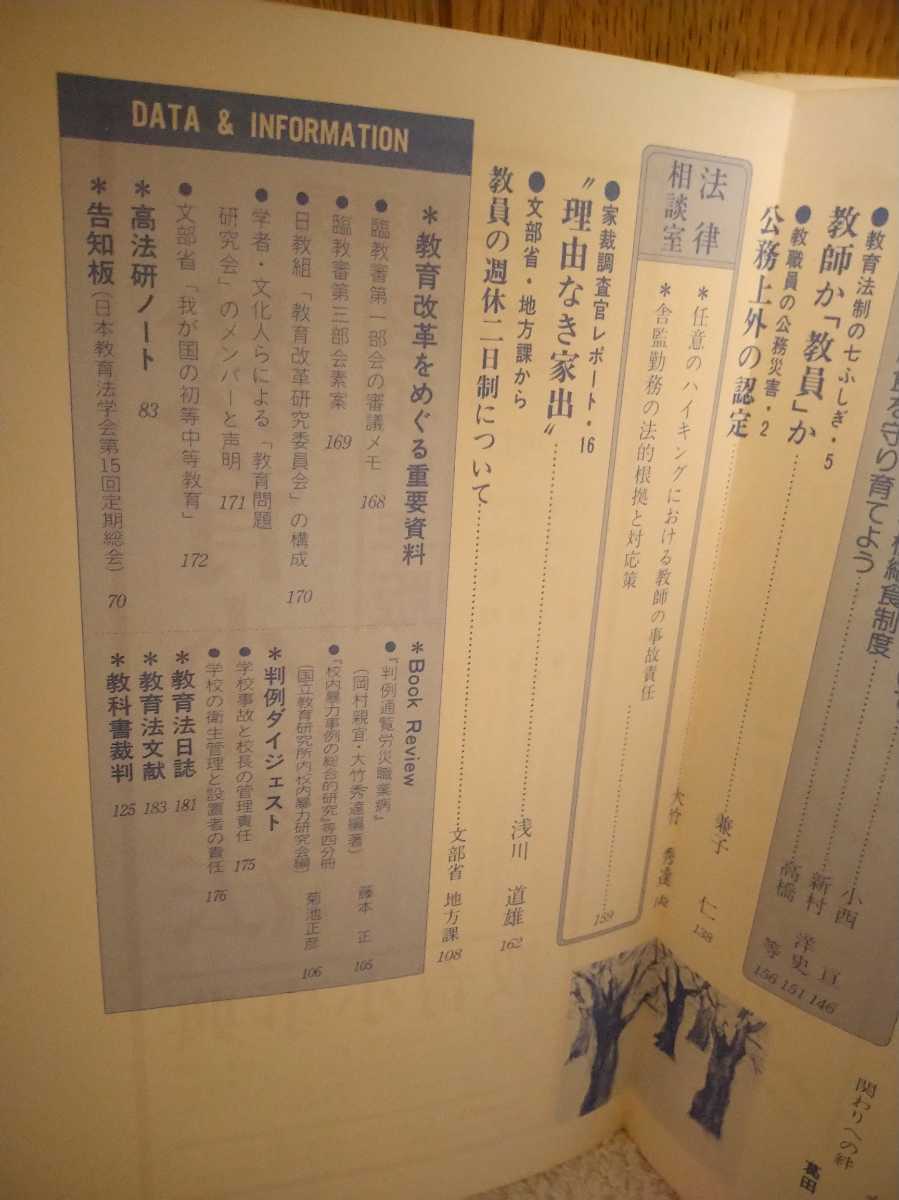 を守り育てよう
給食制度
小西
亘
146
●教育法制の七ふしぎ・5
教師か「教員」か
新村
洋史
151
●教職員の公務災害・2
公務上外の認定
高橋
等
156
法律相談室
＊任意のハイキングにおける教師の事故責任
兼子
仁
158
＊舎監勤務の法的根拠と対応策
大竹
秀達
159
●家裁調査官レポート・16
〝理由なき家出〟
浅川
道雄
162
●文部省・地方課から
教員の週休二日制について
文部省
地方課
108
DATA & INFORMATION
＊教育改革をめぐる重要資料
●臨教審第一部会の審議メモ
168
●臨教審第三部会素案
169
●日教組「教育改革研究委員会」の構成
170
●学者・文化人らによる「教育問題
研究会」のメンバーと声明
171
●文部省「我が国の初等中等教育」
172
＊高法研ノート
83
＊告知板(日本教育法学会第15回定期総会)
70
＊Book Review
●『判例通覧労災職業病』
(岡村親宜・大竹秀達編著)
藤本 正
105
●『校内暴力事例の総合的研究』等四分冊
(国立教育研究所内校内暴力研究会編)
菊池正彦
106
＊判例ダイジェスト
●学校事故と校長の管理責任
175
●学校の衛生管理と設置者の責任
176
＊教育法日誌
181
＊教育法文献
183
＊教科書裁判
125
関わりへの絆